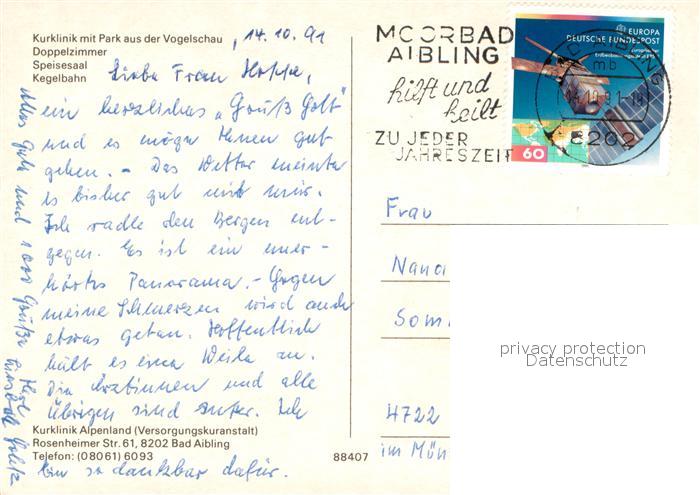 Kurklinik mit Park aus der Vogelschau
Doppelzimmer
Speisesaal
Kegelbahn
, 14.10.91
Liebe Frau Hoppe,
ein herzliches „Grüß Gott"
und es möge Ihnen gut
gehen. - Das Wetter meinte
es bisher gut mit mir.
Ich radle den Bergen ent-
gegen. Es ist ein uner-
hörtes Panorama. - Gegen
meine Schmerzen wird auch
etwas getan. Hoffentlich
hält es eine Weile an.
Die Ärztinnen und alle
Übrigen sind super. Ich
bin so dankbar dafür.
Alles Gute und 1000 Grüße
Ihre
Kurklinik Alpenland (Versorgungskuranstalt)
Rosenheimer Str. 61, 8202 Bad Aibling
Telefon: (08061) 6093
88407
MOORBAD
AIBLING
hilft und
heilt
ZU JEDER
JAHRESZEIT
EUROPA
DEUTSCHE BUNDESPOST
60
mb
8202
Frau
Nana
Som
4722
im Mün
privacy protection
Datenschutz